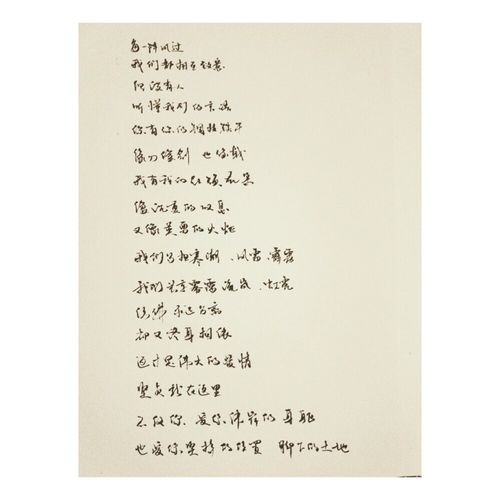 每一阵风过
我们都相互致意
但没有人
听懂我们的言语
你有你的铜枝铁干
像刀像剑 也像戟
我有我的红硕花朵
像沉重的叹息
又像英勇的火炬
我们分担寒潮、风雷、霹雳
我们共享雾霭流岚、虹霓
仿佛永远分离
却又终身相依
这才是伟大的爱情
坚贞就在这里
不仅你 爱你伟岸的身躯
也爱你坚持的位置 脚下的土地